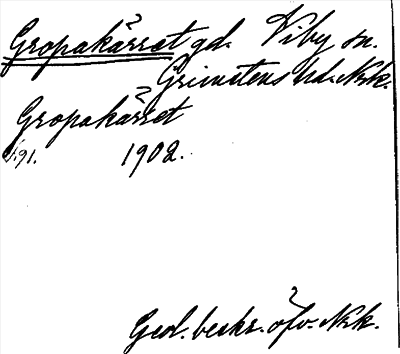 Gropakärret gd. Viby sn.
Grimstens hd. Nrk.
Gropakärret
191. 1902.
Geol. beskr. öfv. Nrk.